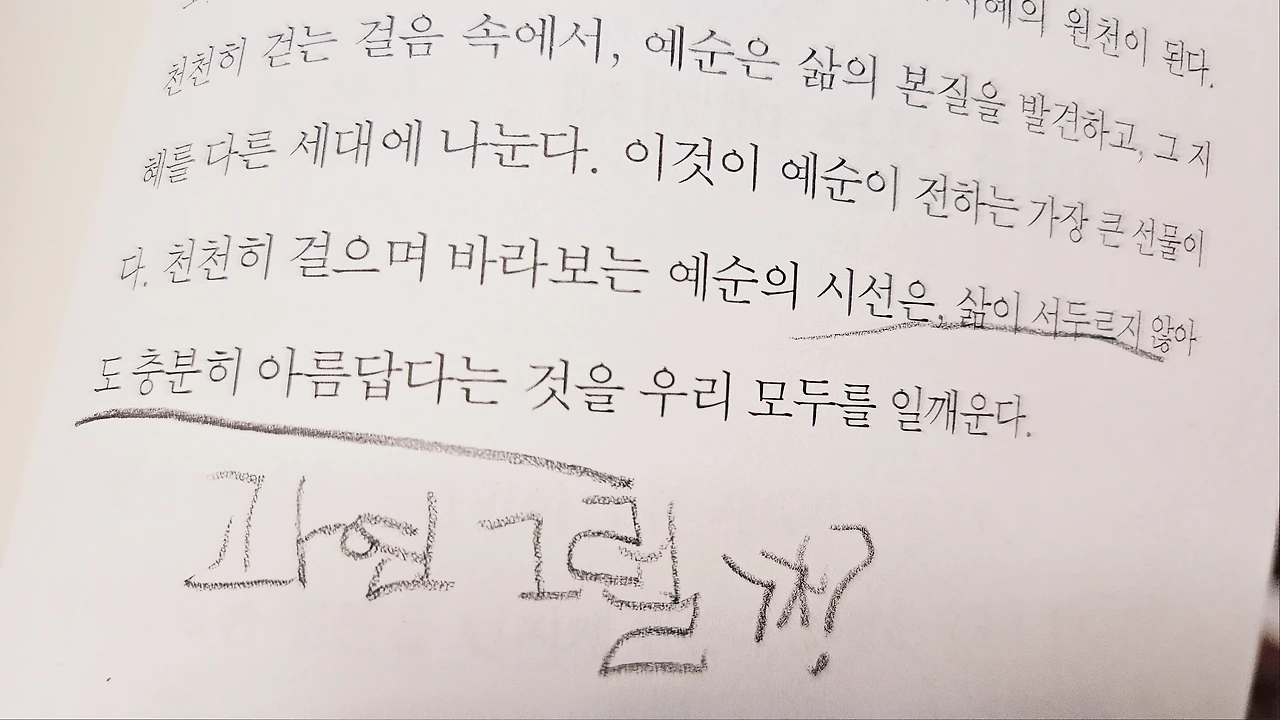 지혜의 원천이 된다.
천천히 걷는 걸음 속에서, 예순은 삶의 본질을 발견하고, 그 지
혜를 다른 세대에 나눈다. 이것이 예순이 전하는 가장 큰 선물이
다. 천천히 걸으며 바라보는 예순의 시선은, 삶이 서두르지 않아
도 충분히 아름답다는 것을 우리 모두를 일깨운다.
과연 그럴까?